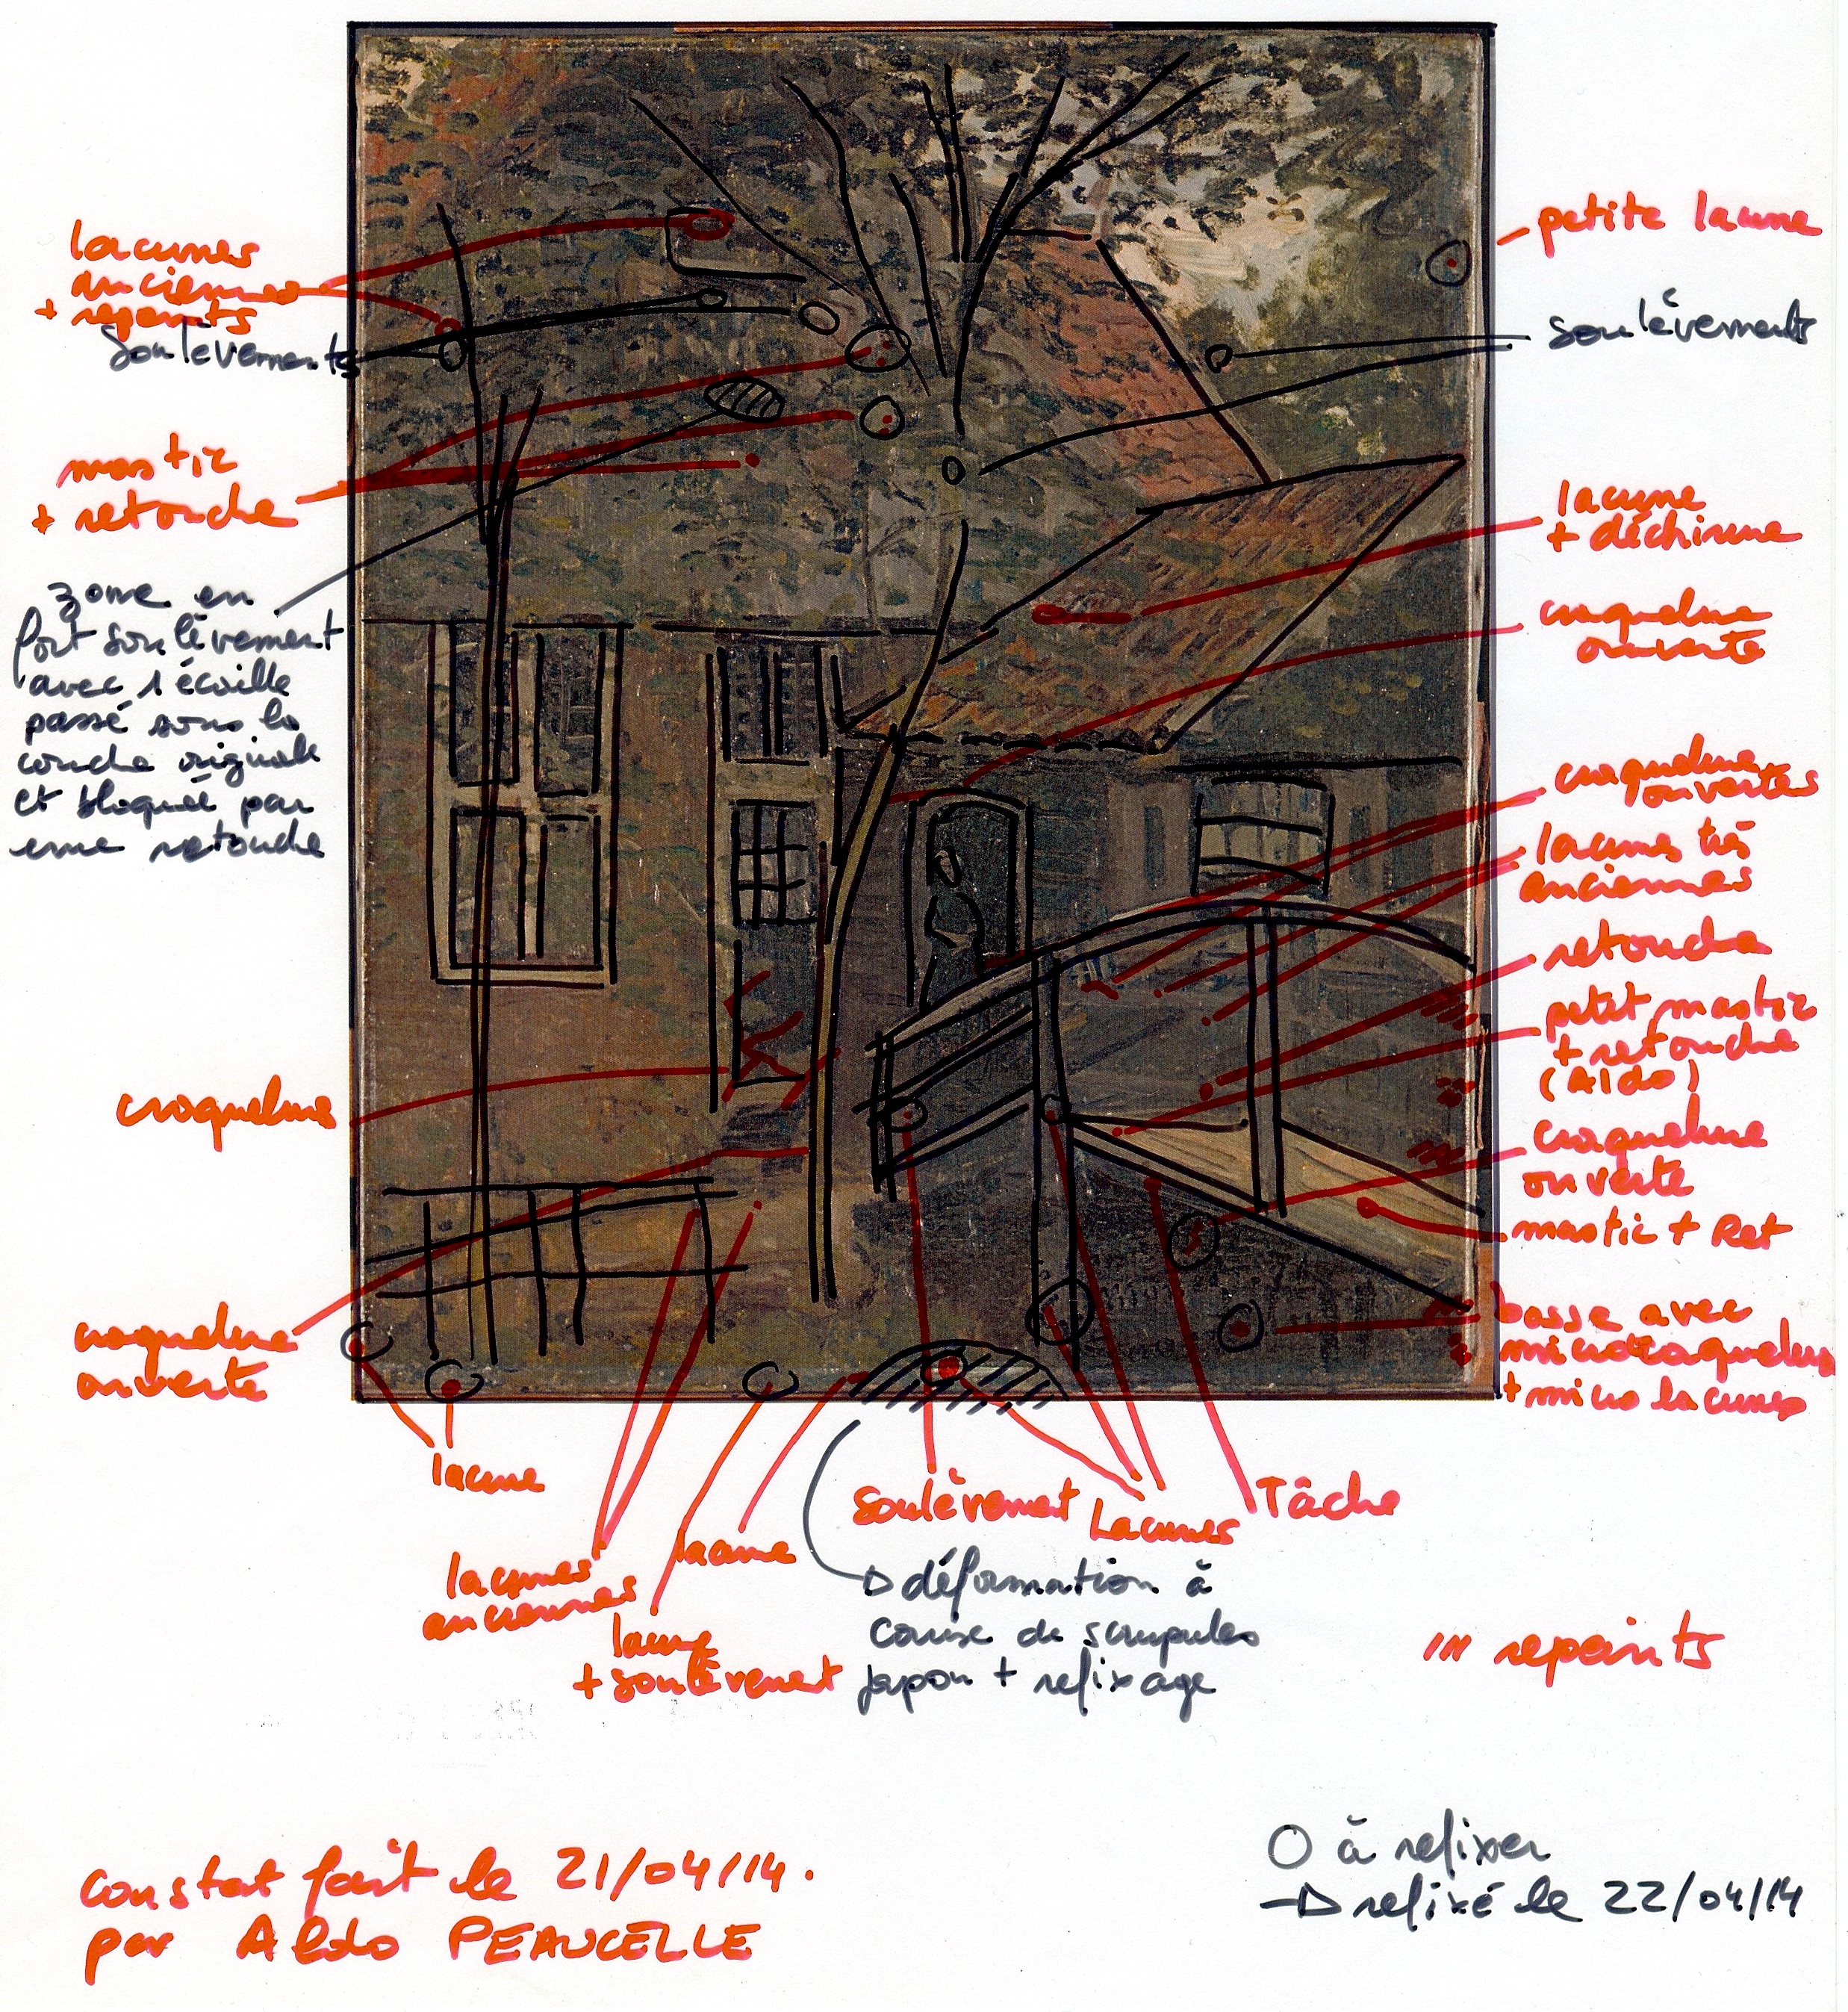 lacunes
anciennes
+ repeints
Soulèvements
mastic
+ retouche
zone en
fort soulèvement
avec 1 écaille
passé sous la
couche originale
et bloquée par
une retouche
craquelures
craquelure
ouverte
petite lacune
soulèvements
lacune
+ déchirure
craquelure
ouverte
craquelures
ouvertes
lacunes très
anciennes
retouche
petit mastic
+ retouche
(Aldo)
craquelure
ouverte
mastic + Ret
basse avec
microcraquelures
+ micro lacunes
lacune
lacunes
anciennes
lacune
lacune
+ soulèvement
soulèvement
Lacunes
Tâche
déformation à
cause de scrupules
japon + refixage
/// repeints
constat fait le 21/04/14.
par Aldo PEAUCELLE
O à refixer
refixé le 22/04/14